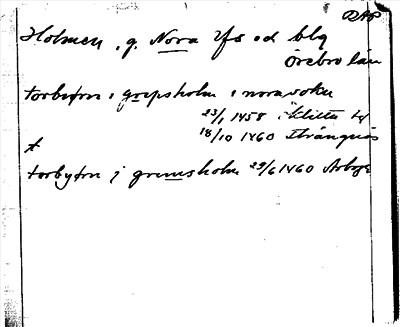 DAP
Holmen, g. Nora sfs o d blg
Örebro län
torbyrn i grepsholm i nora sokn
23/1 1458
18/10 1460 Strängnäs
torbyrn j gremsholm 29/6 1460 Arboga